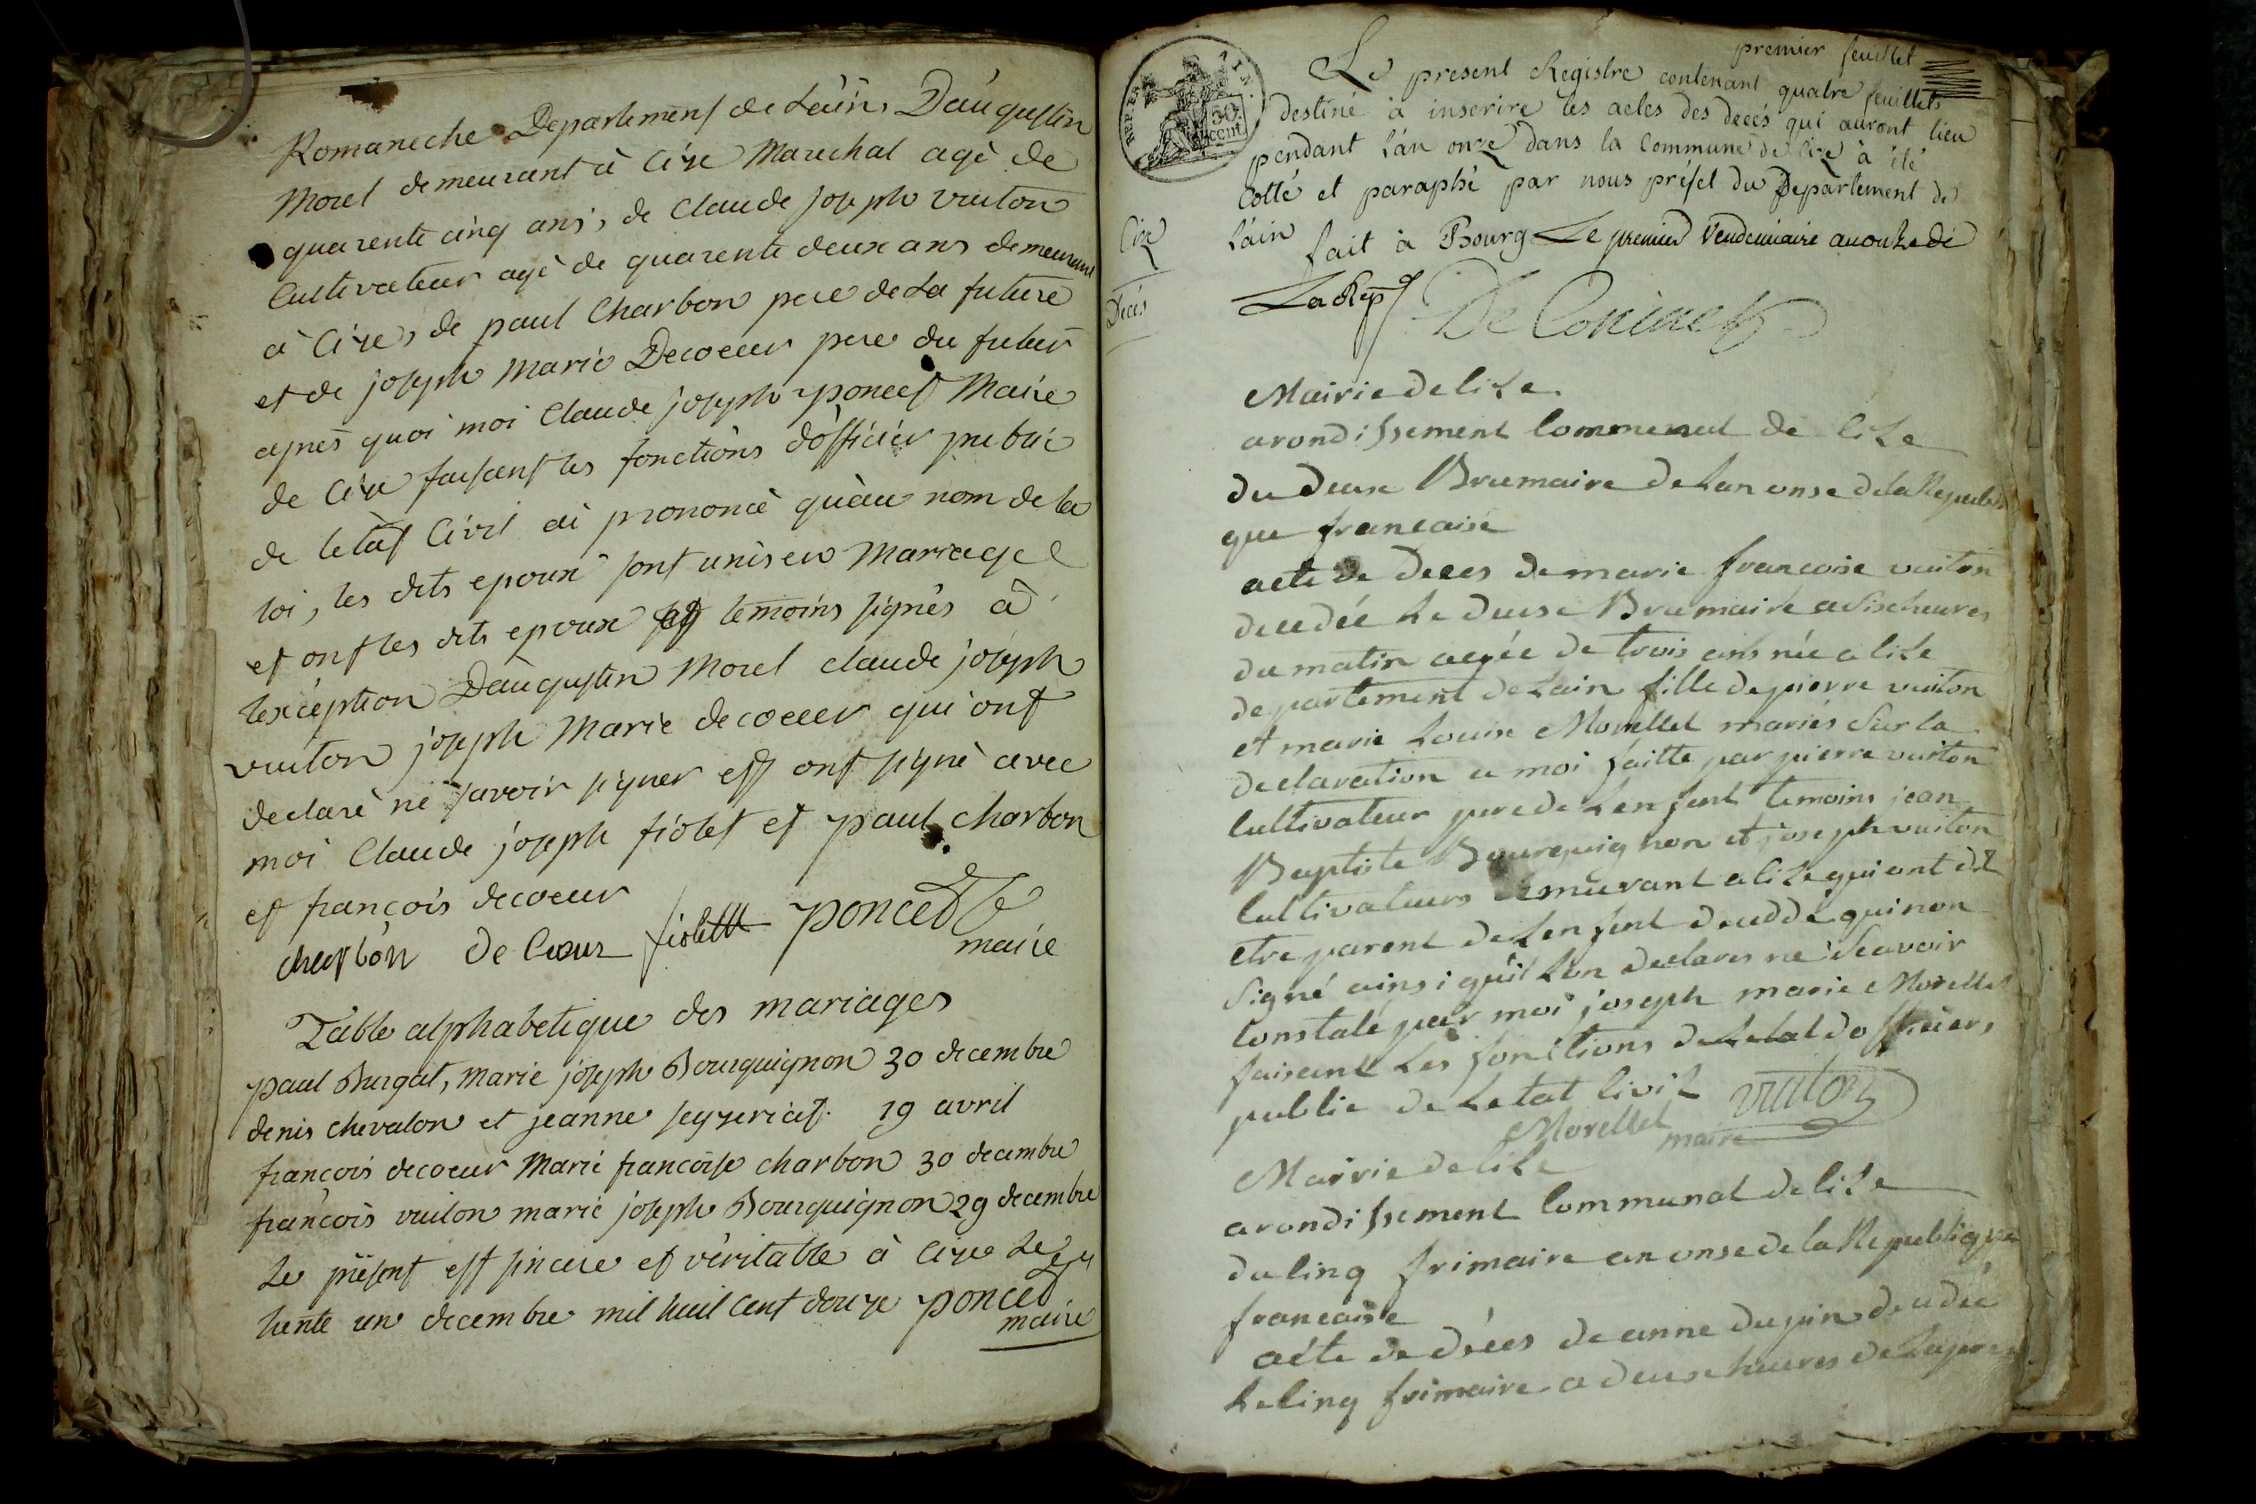 Romaneche Departement de Lain, Daugustin
Morel demeurant à Cize Marechal agé de
quarente cinq ans, de Claude joseph vuiton
Cultivateur agé de quarente deux ans demeurant
à Cize, de paul Charbon pere de La future
et de joseph Marie Decoeur pere du futur
apres quoi moi Claude joseph poncet Maire
de Cize faisant les fonctions d'officier public
de letat Civil ai prononcé quau nom de la
loi, les dits epoux sont unis en Mariage
et ont les dits epoux et temoins signés à
lexception Daugustin Morel claude joseph
vuiton joseph Marie decoeur qui ont
declaré ne savoir signer et ont signé avec
moi Claude joseph fiolet et paul charbon
et françois decoeur
charbon De Coeur fiolet poncet
maire
Table alphabetique des mariages
paul Burgat, marie joseph Bourquignon 30 decembre
denis chevalon et jeanne seyzeriat. 19 avril
françois decoeur Marie françoise charbon 30 decembre
françois vuiton marie joseph Bourquignon 29 decembre
Le présent est sincere et véritable à Cize le
trente un decembre mil huit cent douze poncet
maire
premier feuillet
REP. FRA.
50 cent
Le present Registre contenant quatre feuillets
destiné à inscrire les actes des decés qui auront lieu
pendant L'an onze dans la Commune de Cize à été
Cotté et paraphé par nous préfet du Departement de
L'ain
Cize
fait à Bourg Le premier Vendemiaire an onze de
Decés
La Rep
De Coninck
Mairie de Cize
arondissement Communal de Cize
du deux Brumaire de Lan onse de la Republi
que francaise
acte de deces de marie francoise vuiton
decedée Le deuse Brumaire a Sisc heures
du matin agée de trois ans née a Cize
departement de Lain fille de pierre vuiton
et marie Louise Morellet mariés Sur la
declaration a moi faitte par pierre vuiton
Cultivateur pere de Lenfant temoins jean
Baptiste Bourquignon et joseph vuiton
Cultivateurs demeurant a Cize qui ont dit
etre parent de Lenfent decedde qui non
Signé ainsi qu'il Lon declares ne Scavoir
Constaté par moi joseph marie Morellet
faisant Les fonctions de Letat dofficiers
public de Letat Civil
vuiton
Morellet
maire
Mairie de Cize
arondissement Communal de Cize
du Cinq frimaire an onse de la Republique
francaise
acte de dèces de anne dupin decedée
Le Cinq frimaire a deuse heures de Lapres